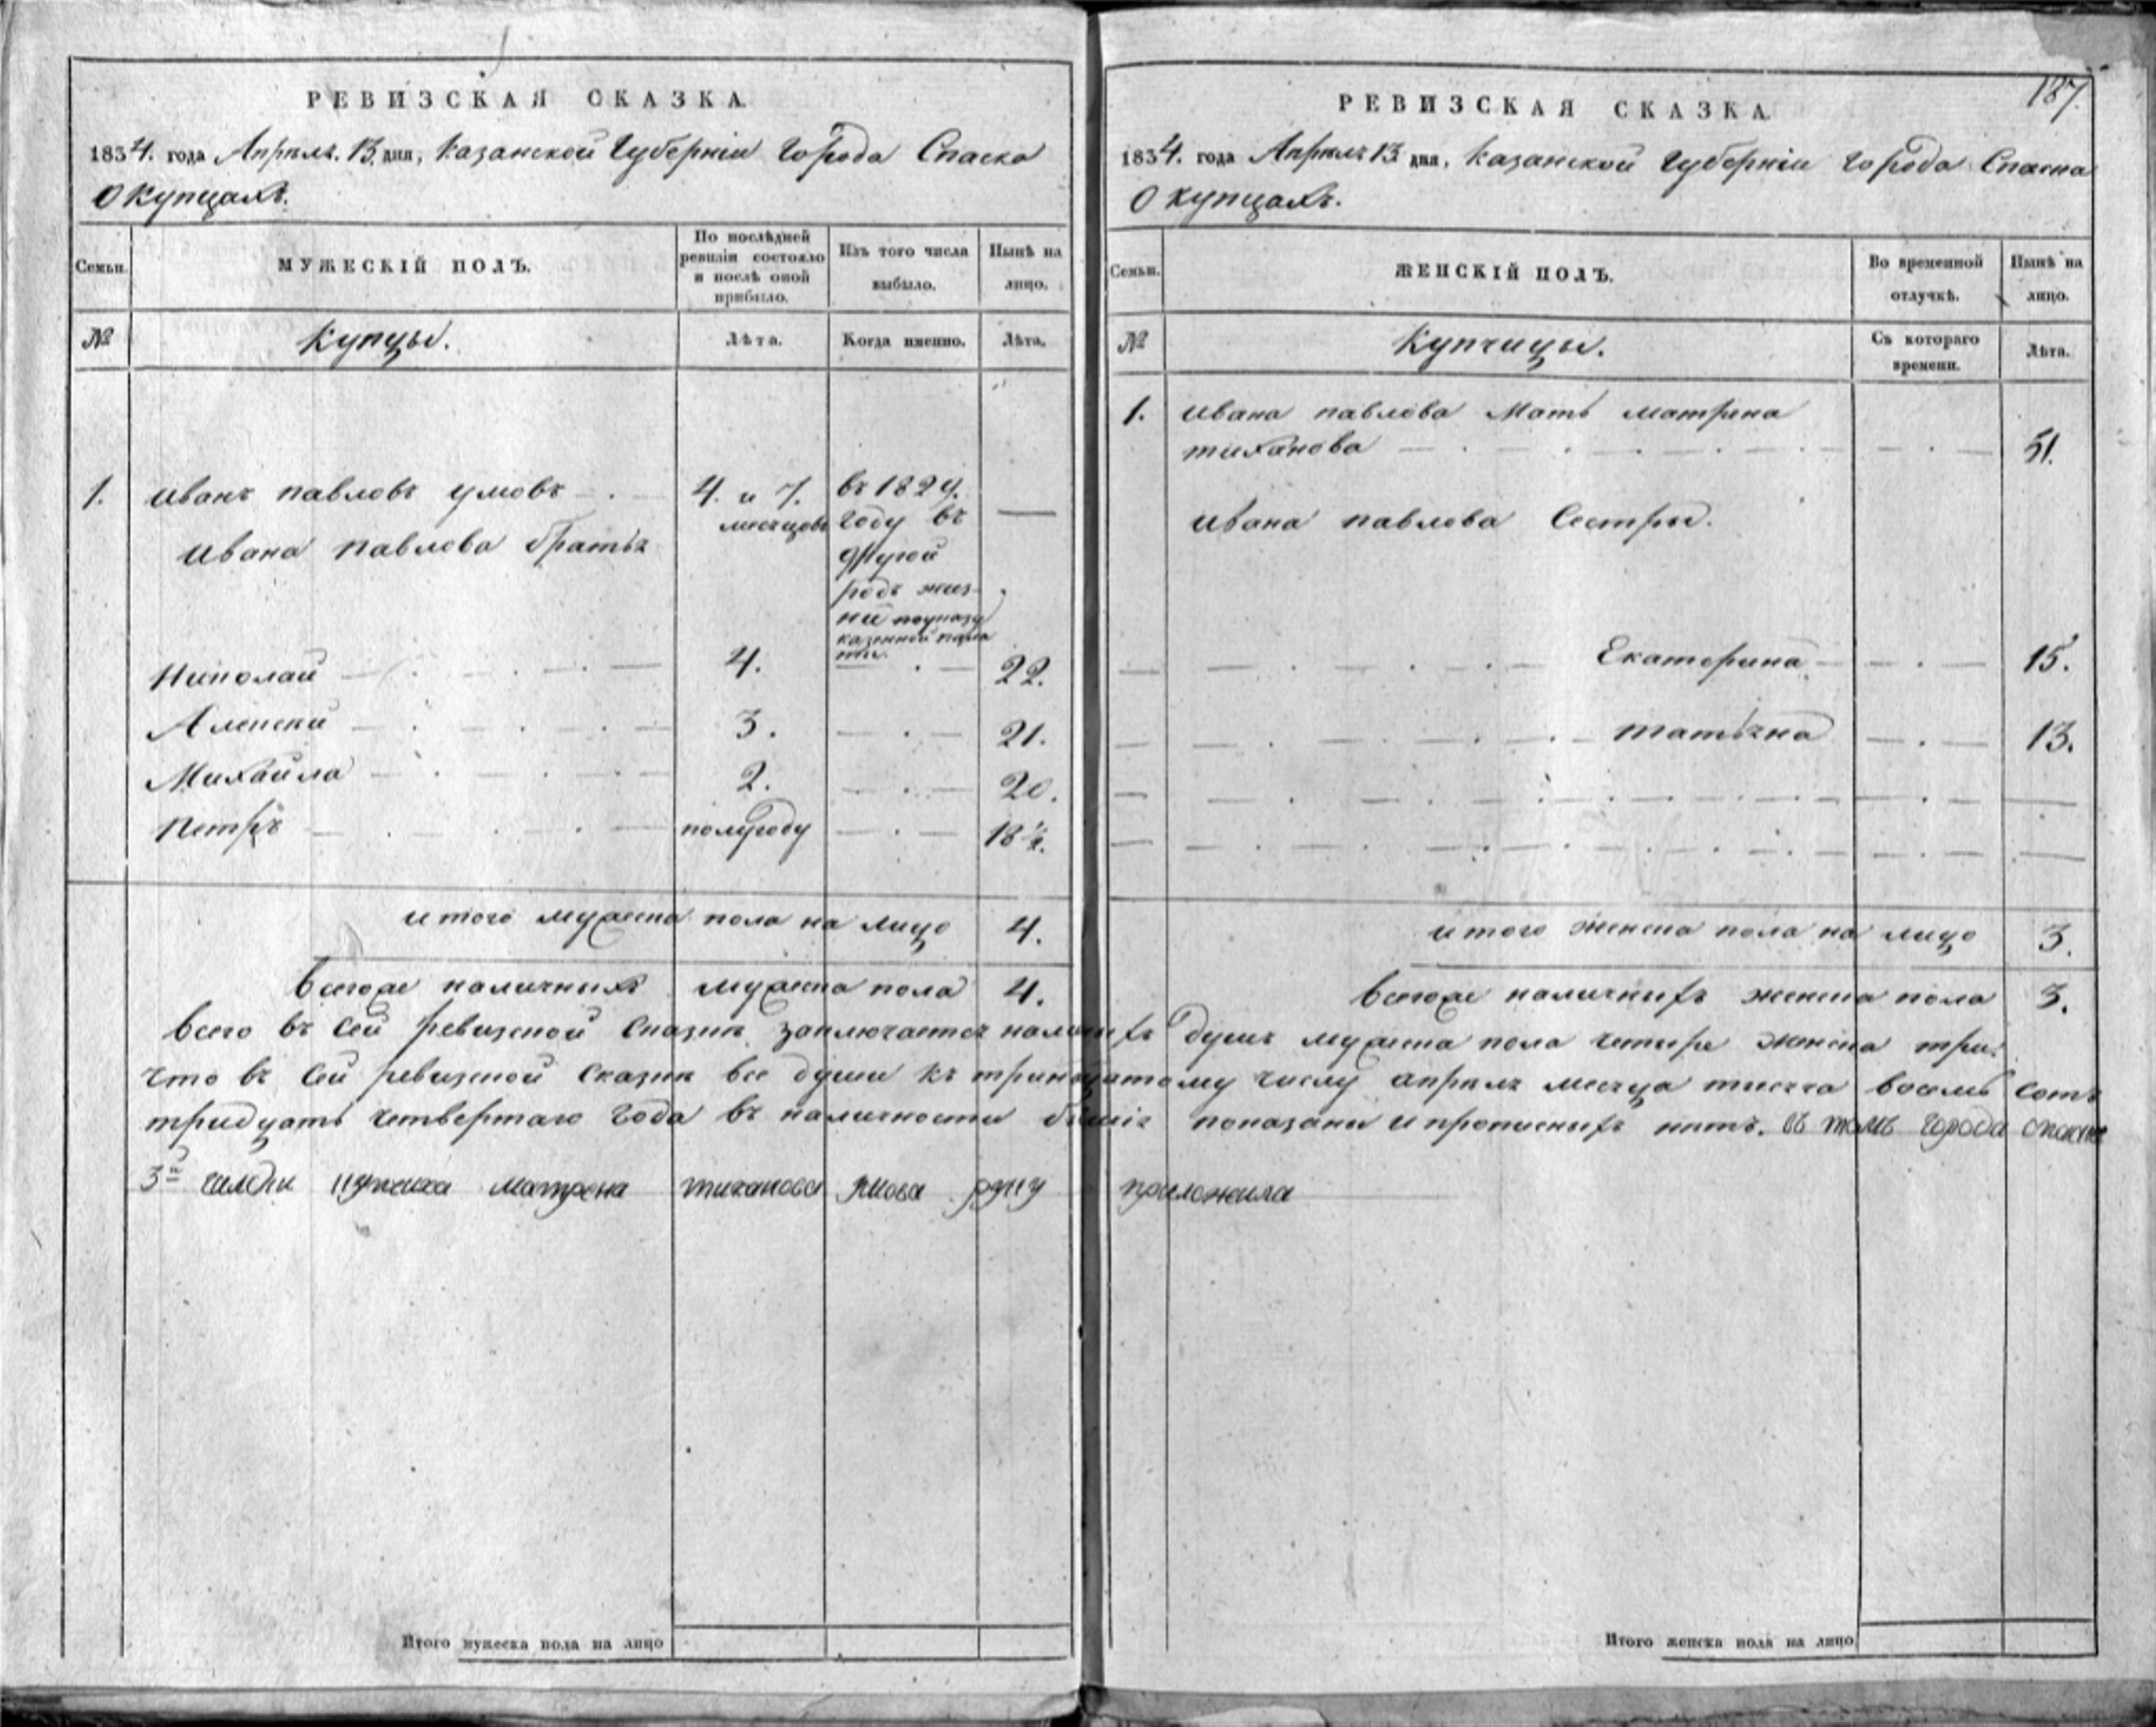 РЕВИЗСКАЯ СКАЗКА.
1834. года Апреля. 13. дня, Казанской Губерніи города Спаска
О купцахъ.
Семьи.
МУЖЕСКІЙ ПОЛЪ.
По послѣдней ревизіи состояло и послѣ оной прибыло.
Изъ того числа выбыло.
Нынѣ на лицо.
№
Купцы.
Лѣта.
Когда именно.
Лѣта.
1. иванъ павловъ умовъ 4. и 7. месяцовъ
въ 1829.
году въ
другой
родъ жиз-
ни поуказу
казенной пала
ты.
ивана павлова братья
Николай 4. 22.
Алексей 3. 21.
Михайла 2. 20.
Петръ полугоду 18 ½.
итого мужеска пола на лицо 4.
всегоже наличныхъ мужеска пола 4.
РЕВИЗСКАЯ СКАЗКА.
187.
1834. года Апреля 13. дня, Казанской губерніи города Спаска
О купцахъ.
Семьи.
ЖЕНСКІЙ ПОЛЪ.
Во временной отлучкѣ.
Нынѣ на лицо.
№
Купчихи.
Съ котораго времени.
Лѣта.
1. ивана павлова мать матрена
тиханова 51.
ивана павлова сестры.
Екатерина 15.
татьяна 13.
итого женска пола на лицо 3.
всегоже наличныхъ женска пола 3.
всего въ сей ревизской сказке заключается наличныхъ душъ мужеска пола четыре женска три.
что въ сей ревизской сказке все души къ тринадцатому числу апреля месяца тысяча восемь сотъ
тридцать четвертаго года въ наличности бывшія показаны и прописныхъ нетъ. въ томъ города спаска
3й гилдіи купчиха матрена тиханова умова руку приложила
Итого мужеска пола на лицо
Итого женска пола на лицо